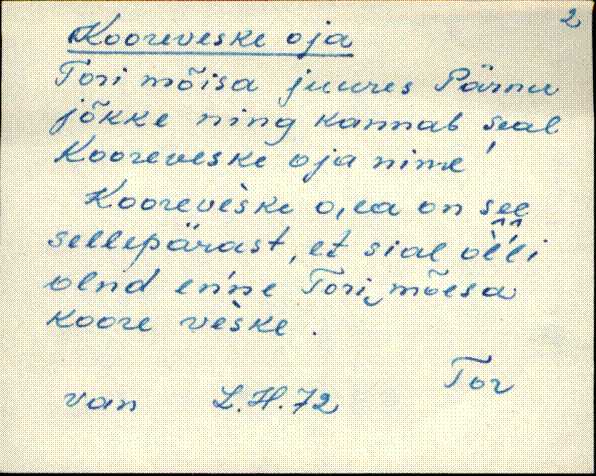 2
Kooreveske oja
Tori mõisa juures Pärnu
jõkke ning kannab seal
Kooreveske oja nime
Koorevèske o,ea on see
sellepärast, et sial ol̀li
olnd en'ne Tori mõesa
koore vèske.
Tor
van L.H.72